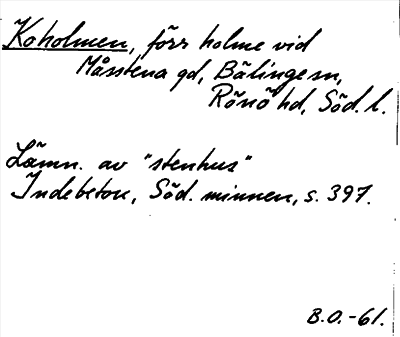 Koholmen, förr holme vid
Månstena gd, Bälinge sn,
Rönö hd, Söd. l.
Lämn. av "stenhus"
Indebetou, Söd. minnen, s. 397.
B.O.-61.